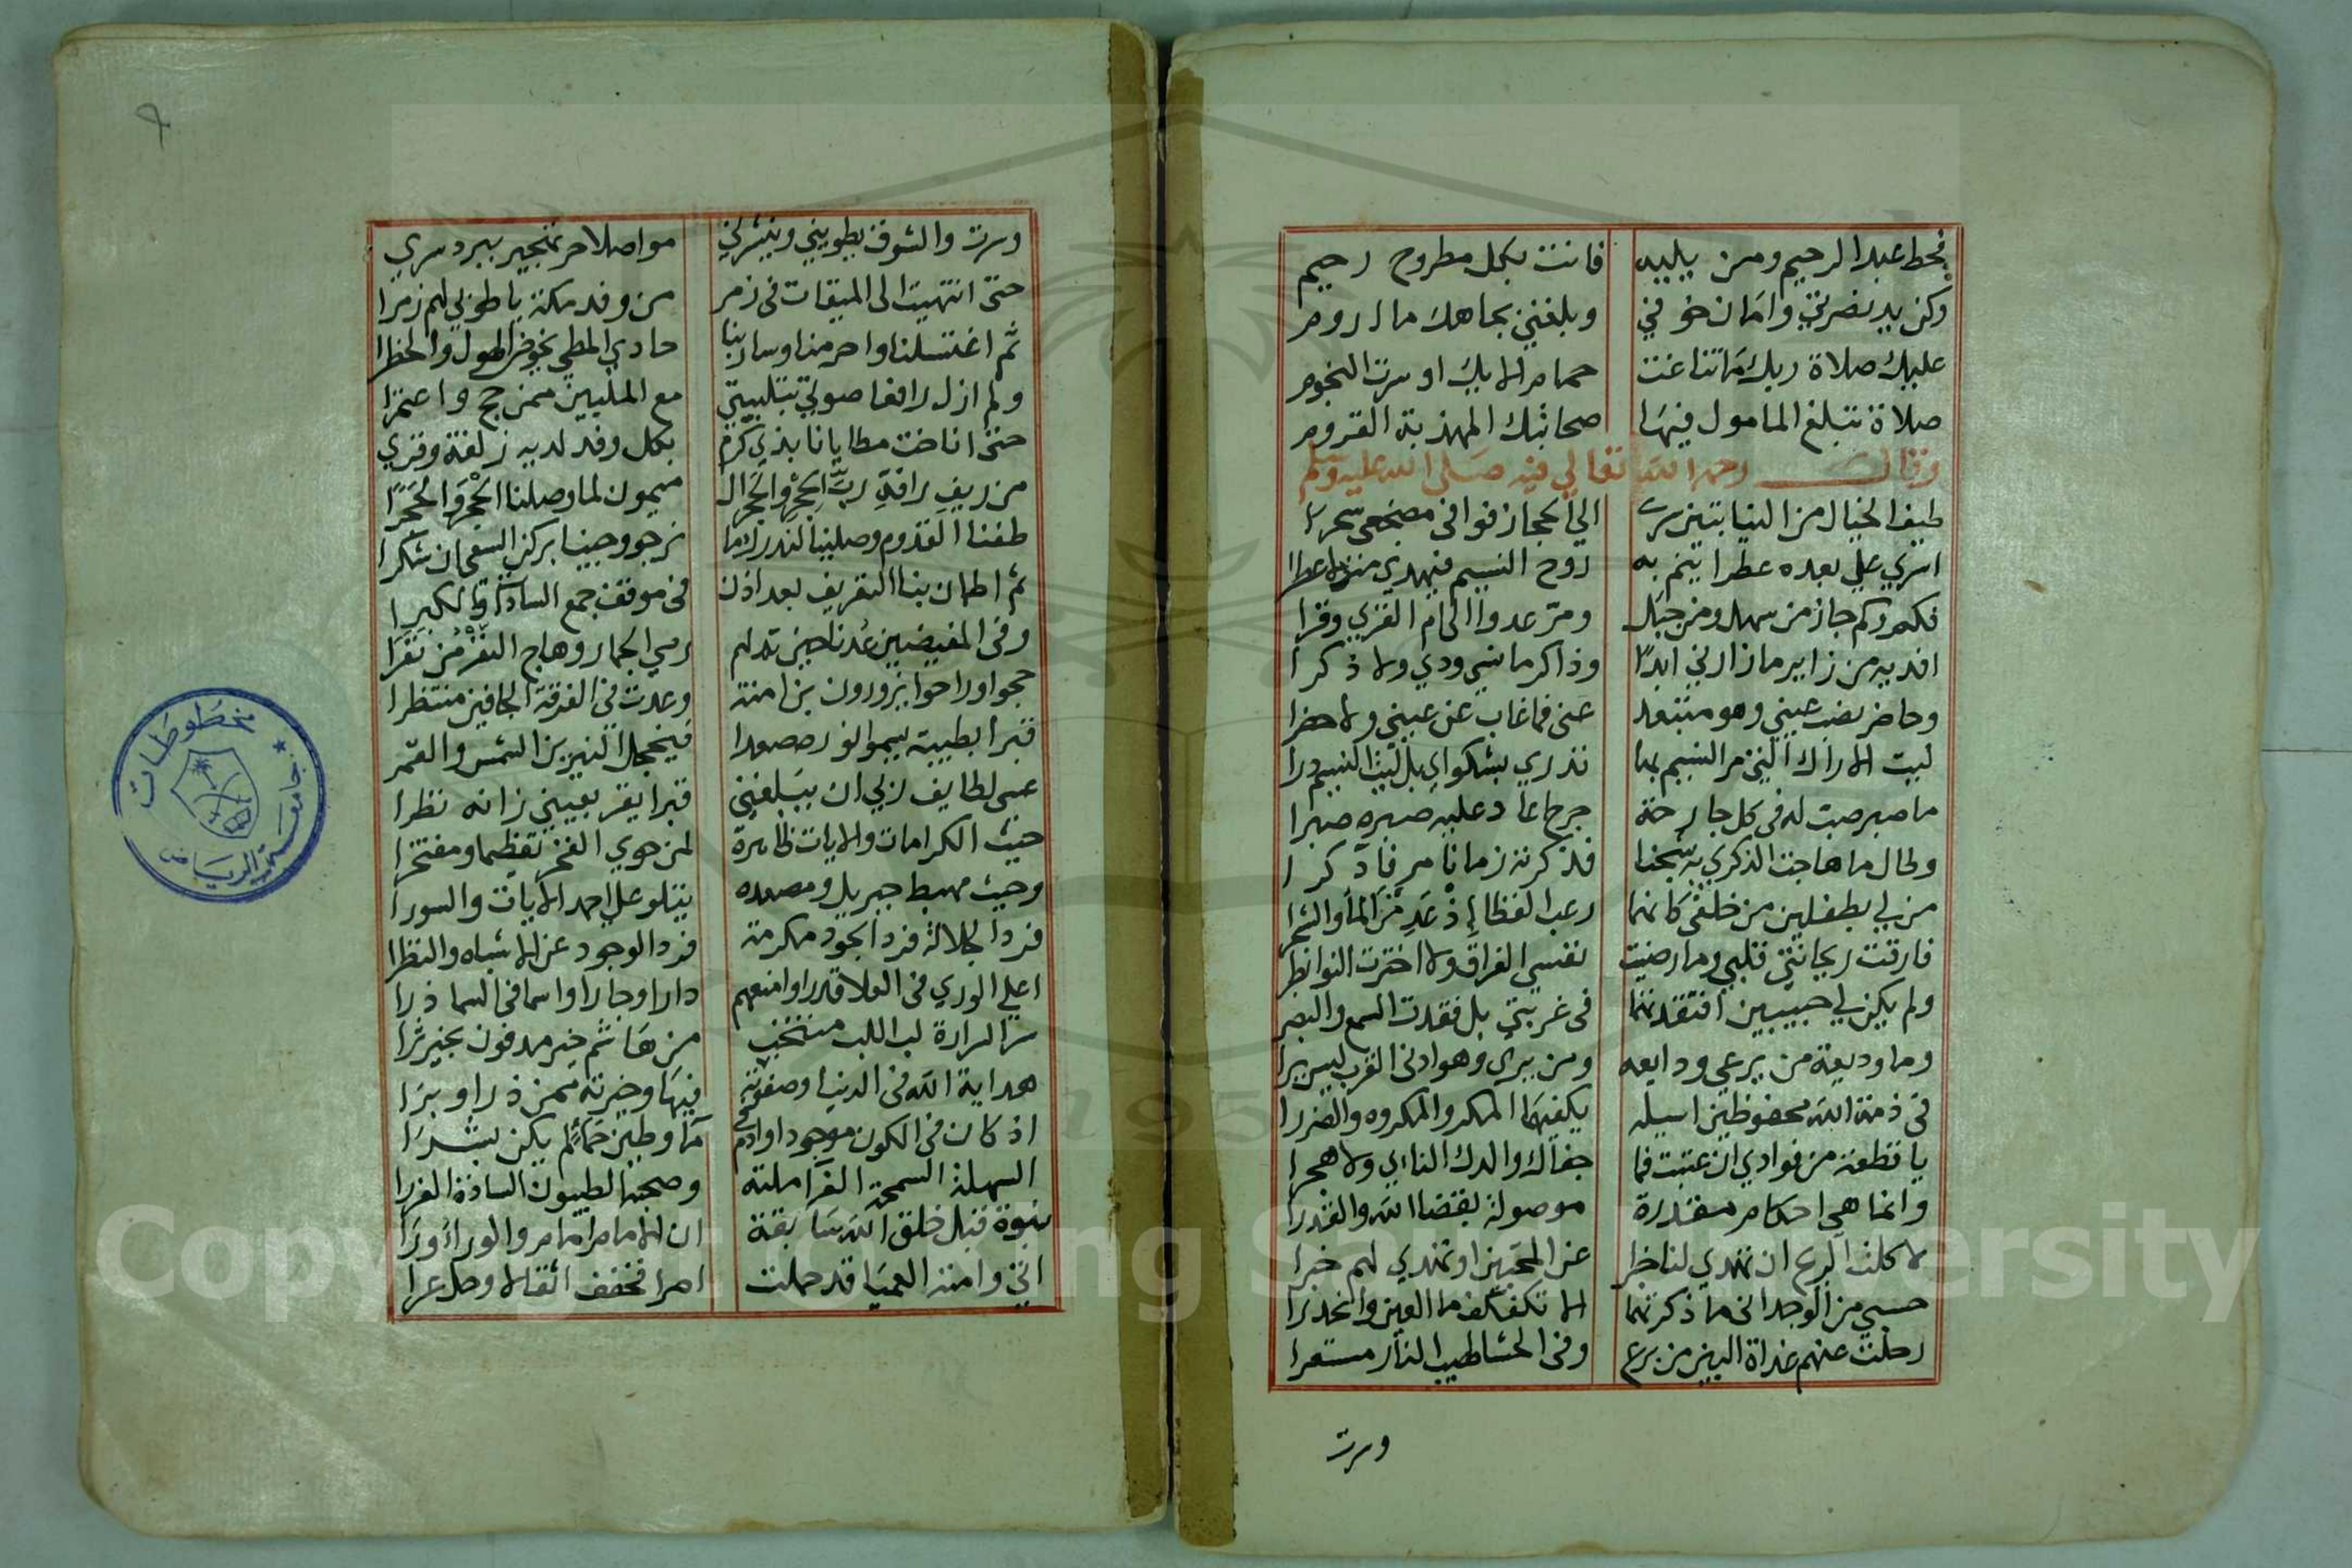 فحط عبد الرحيم ومن يليه فانت بكل مطروح رحيم
وكن يد نصرتي وامان خوفي وبلغني بجاهك ما اروم
عليك صلاة ربك ما تناغت حمام الايك او سرت النجوم
صلاة تبلغ المامول فيها صحابتك المهذبة القروم
وقال رحمه الله تعالي فيه صلي الله عليه وسلم
طيف الخيال من النيابتين سرى الي الحجاز فوافى مضجعي سحرا
اسري علي بعده عطرا ينم به روح النسيم فيهدي منه عطرا
فكم وكم جاز من سهل ومن جبل ومر عدوا الى ام القري وقرا
افديه من زاير ما زارني ابدا وذاكر ما نسي ودي ولا ذكرا
وحاضر نصب عيني وهو مبتعد عنى فما غاب عن عيني ولا حضرا
ليت الاراك التي مر النسيم بها تدري بشكواي بل ليت النسيم درا
ما صبر صب له فى كل جارحة جرح اعاد عليه صبره صبرا
ولحال ما هاجت الذكري به شجنا فذكرته زمانا مر فادكرا
من لي بطفلين من خلفى كانهما زغب القطا اذ عدمن الما والشجرا
فارقت ريحانتى قلبي وما رضيت نفسي الفراق ولا اخترت النوا نظرا
ولم يكن لي حبيبين افتقدتهما فى غربتي بل فقدت السمع والبصر
وما وديعة من يرعي ودايعه ومن يري وهو ادنى القرب ليس يرا
فى ذمة الله محفوظين اسيله يكفيهما المكر والمكروه والضررا
يا قطعة من فوادي ان عتبت فما جفاك والدك الناءي ولا هجرا
وانما هي احكام مقدرة موصولة بقضا الله والقدرا
لا كلفت الريح ان تهدي لنا خبرا عن المحبين او تهدي لهم خبرا
حسبي من الوجد انى ما ذكرتهما الا تكفكف ما العين وانحدرا
رحلت عنهم غداة البين من برع وفى الحشا لهيب النار مستعرا
وسرت
وسرت والشوق يطويني وينشرني مواصلا حر تهجير ببرد سري
حتى انتهيت الى الميقات فى زمر من وفد مكة يا طوبي لهم زمرا
ثم اغتسلنا واحرمنا وسار بنا حادي المطي يخوض الهول والخطرا
ولم ازل رافعا صوتي بتلبيتي مع الملبين ممن حج واعتمرا
حتى اناخت مطايانا بذي كرم بكل وفد لديه زلفة وقري
من ريف رافة رب الحجر والحجر ال ميمون لما وصلنا الحجر والحجرا
طفنا القدوم وصلينا لندرك ما نرجو وجينا بركن السعى ان شكرا
ثم اطمان بنا التعريف بعد اذن فى موقف جمع السادات والكبرا
وفى المفيضين عدنا حين تم لهم رمي الجمار وهاج النفر من نفرا
حجوا وراحوا يزورون بن امنة وعدت فى الفرقة الجافين منتظرا
قبرا بطيبة يسموا نوره صعدا فيخجل النيرين الشمس والقمر
عسى لطايف ربي ان يبلغني قبرا يقر بعيني زانه نظرا
حيث الكرامات والايات ظاهرة لمن حوي الفخر تعظيما ومفتخرا
وحيث مهبط جبريل ومصعده يتلو علي احمد الايات والسورا
فرد الجلالة فرد الجود مكرمة فرد الوجود عن الاشباه والنظرا
اعلي الوري فى العلا قدرا وامنعهم دارا وجارا واسما فى السما ذرا
سر السرارة لب اللب منتخب من هاشم خير مدفون بخير ثرا
هداية الله فى الدنيا وصفوته فيها وخيرته ممن ذرا وبرا
اذ كان فى الكون موجودا وادم فى مآ وطين حمآ لم يكن بشرا
السهلة السمحة الغرا ملته وصحبه الطيبون السادة الغررا
نبوة قبل خلق الله سابقة ان الامام امام والورا ورا
اتى وامته العميا قد حملت امرا فخفف اثقالا وحل عرا
مخطوطات
جامعة الرياض
Copyright © King Saud University
195